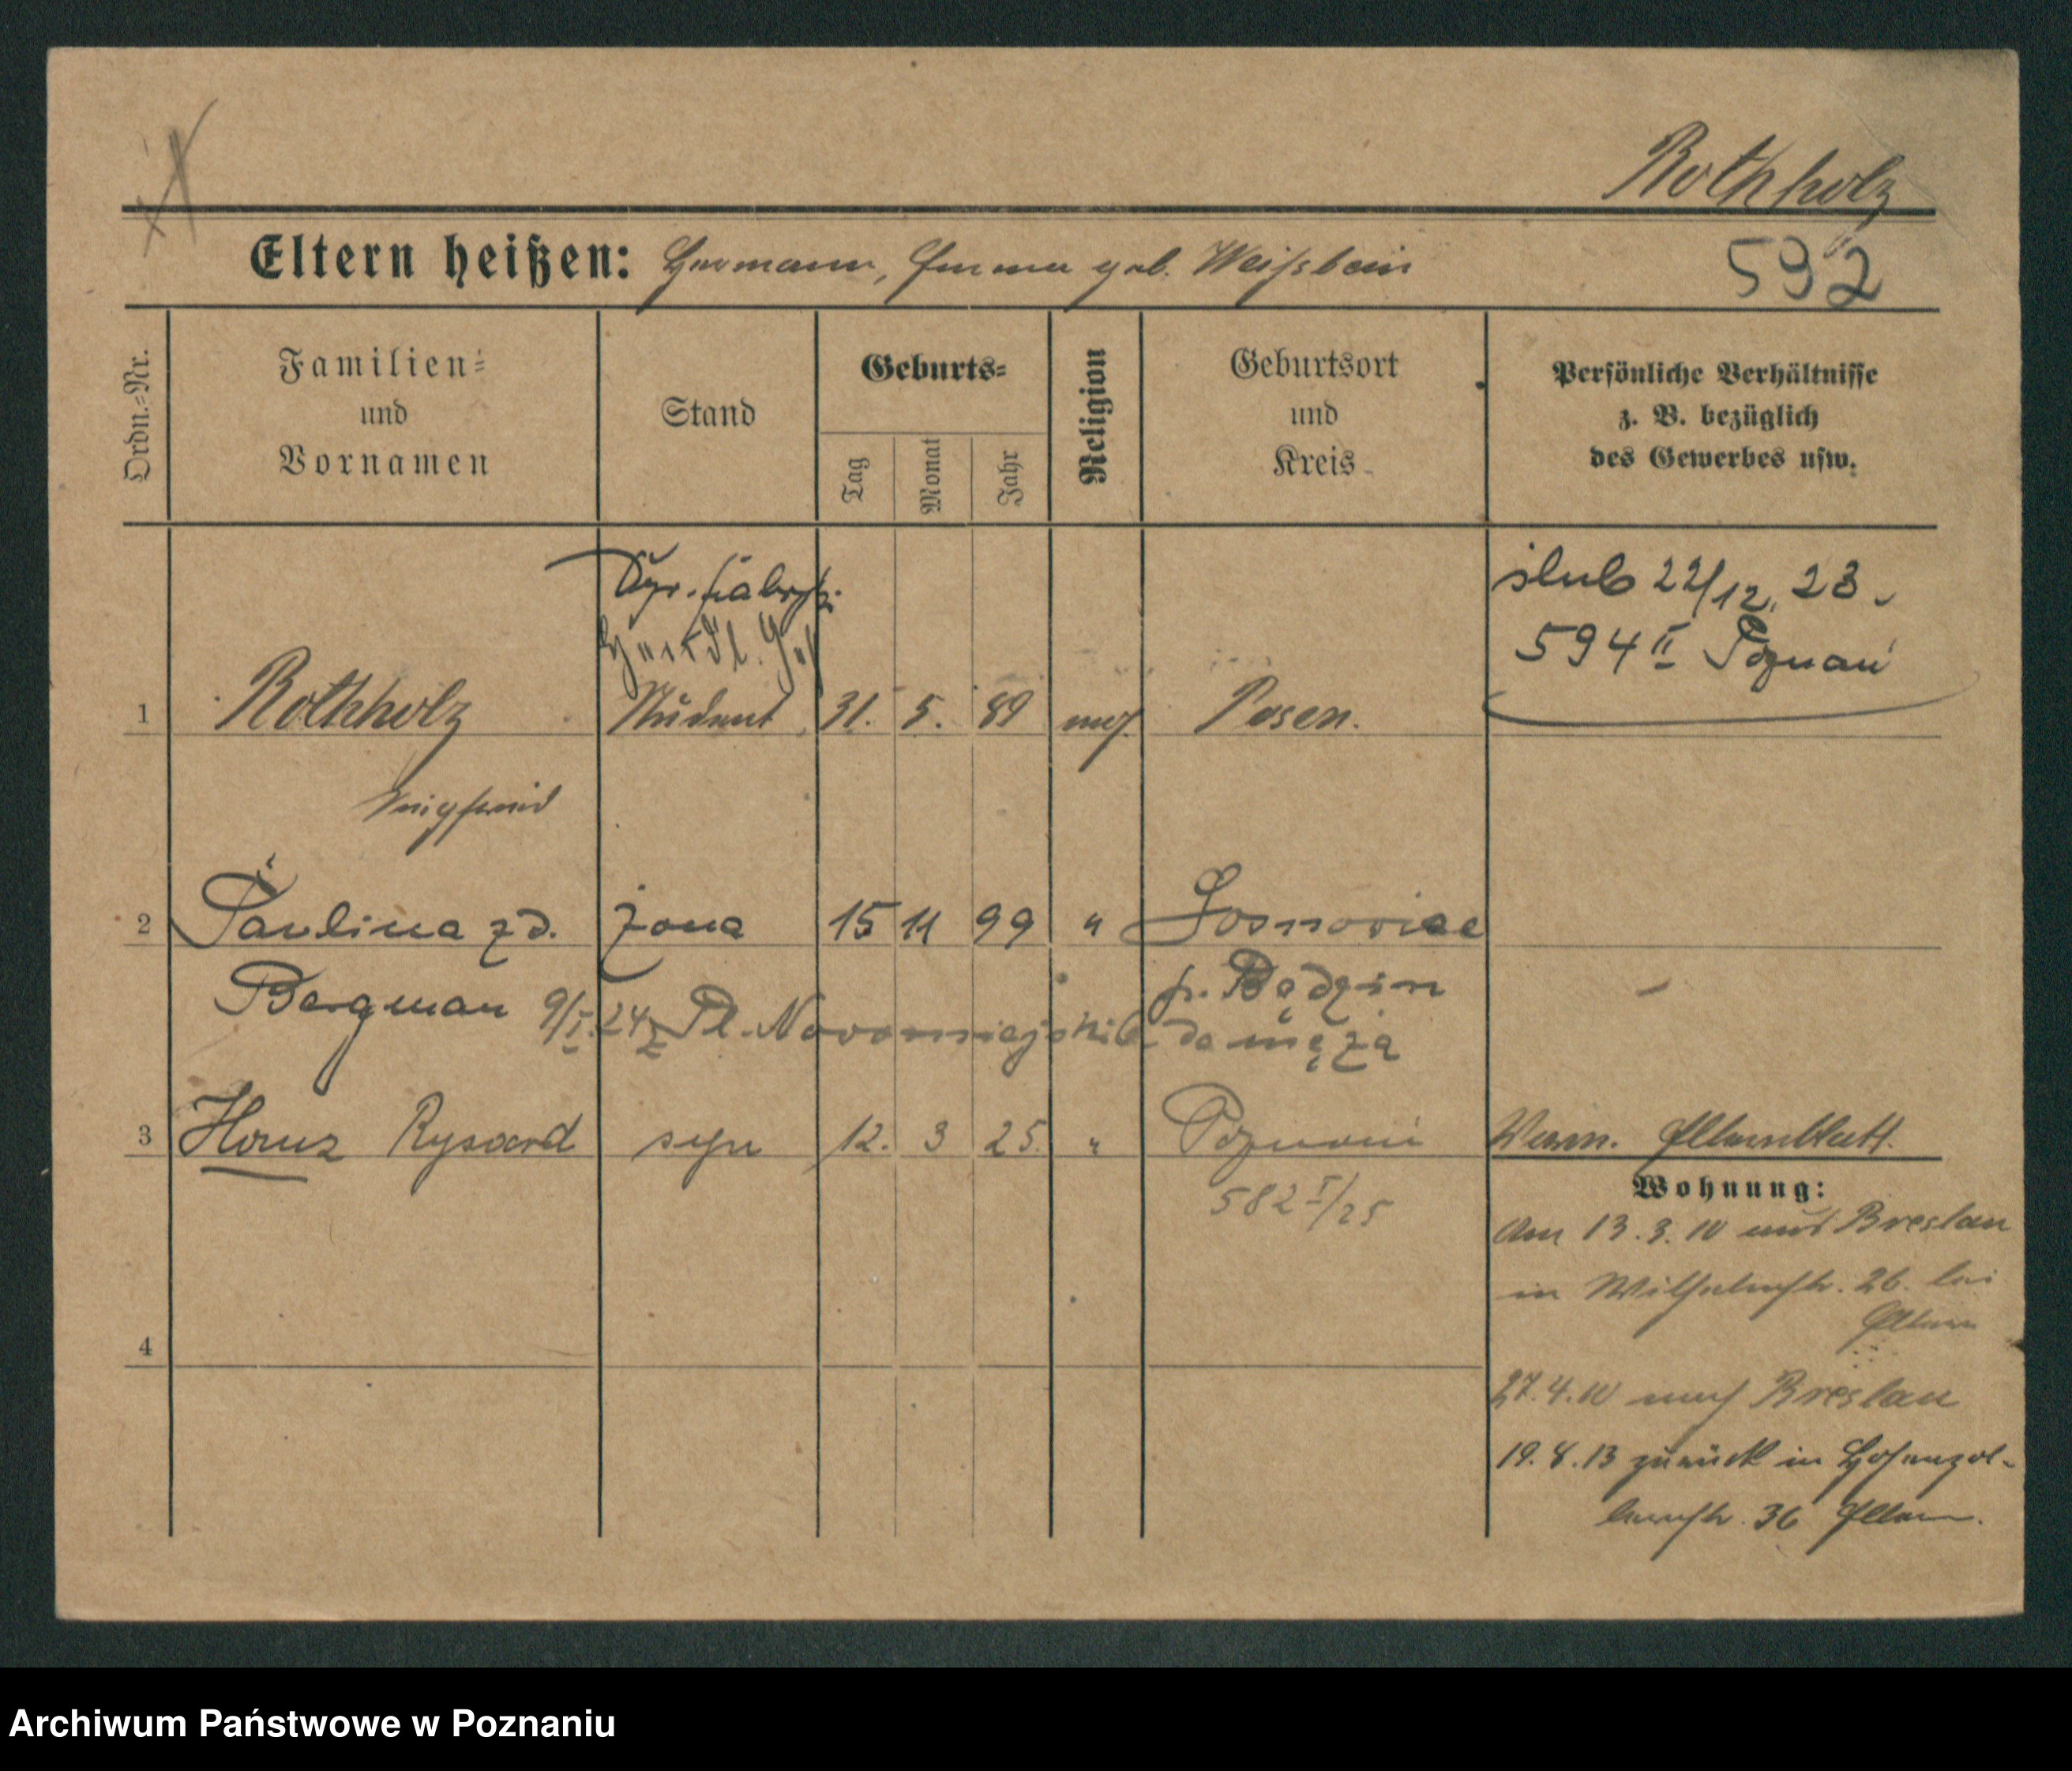 Rothholz
Eltern heißen: Hermann, Emma geb. Weißbein
592
Ordn.=Nr.
Familien=
und
Vornamen
Stand
Geburts=
Tag
Monat
Jahr
Religion
Geburtsort
und
Kreis
Persönliche Verhältnisse
z. B. bezüglich
des Gewerbes usw.
Dyr. fabryki
ślub 22/12. 23.
594 II Poznań
1 Rothholz Student 31. 5. 89 mos. Posen.
Siegfried
2 Paulina zd. żona 15 11 99 " Sosnowice
Bergman p. Będzin
9/I.24 z Pl. Nowomiejski do męża
3 Hans Rysard syn 12. 3 25. " Poznań
582 I/25
Verm. Elternblatt.
Wohnung:
Am 13.3.10 aus Breslau
in Wilhelmstr. 26. bei
Eltern
4
27.4.10 nach Breslau
19.8.13 zurück in Hohenzol-
lernstr. 36 Eltern.
Archiwum Państwowe w Poznaniu